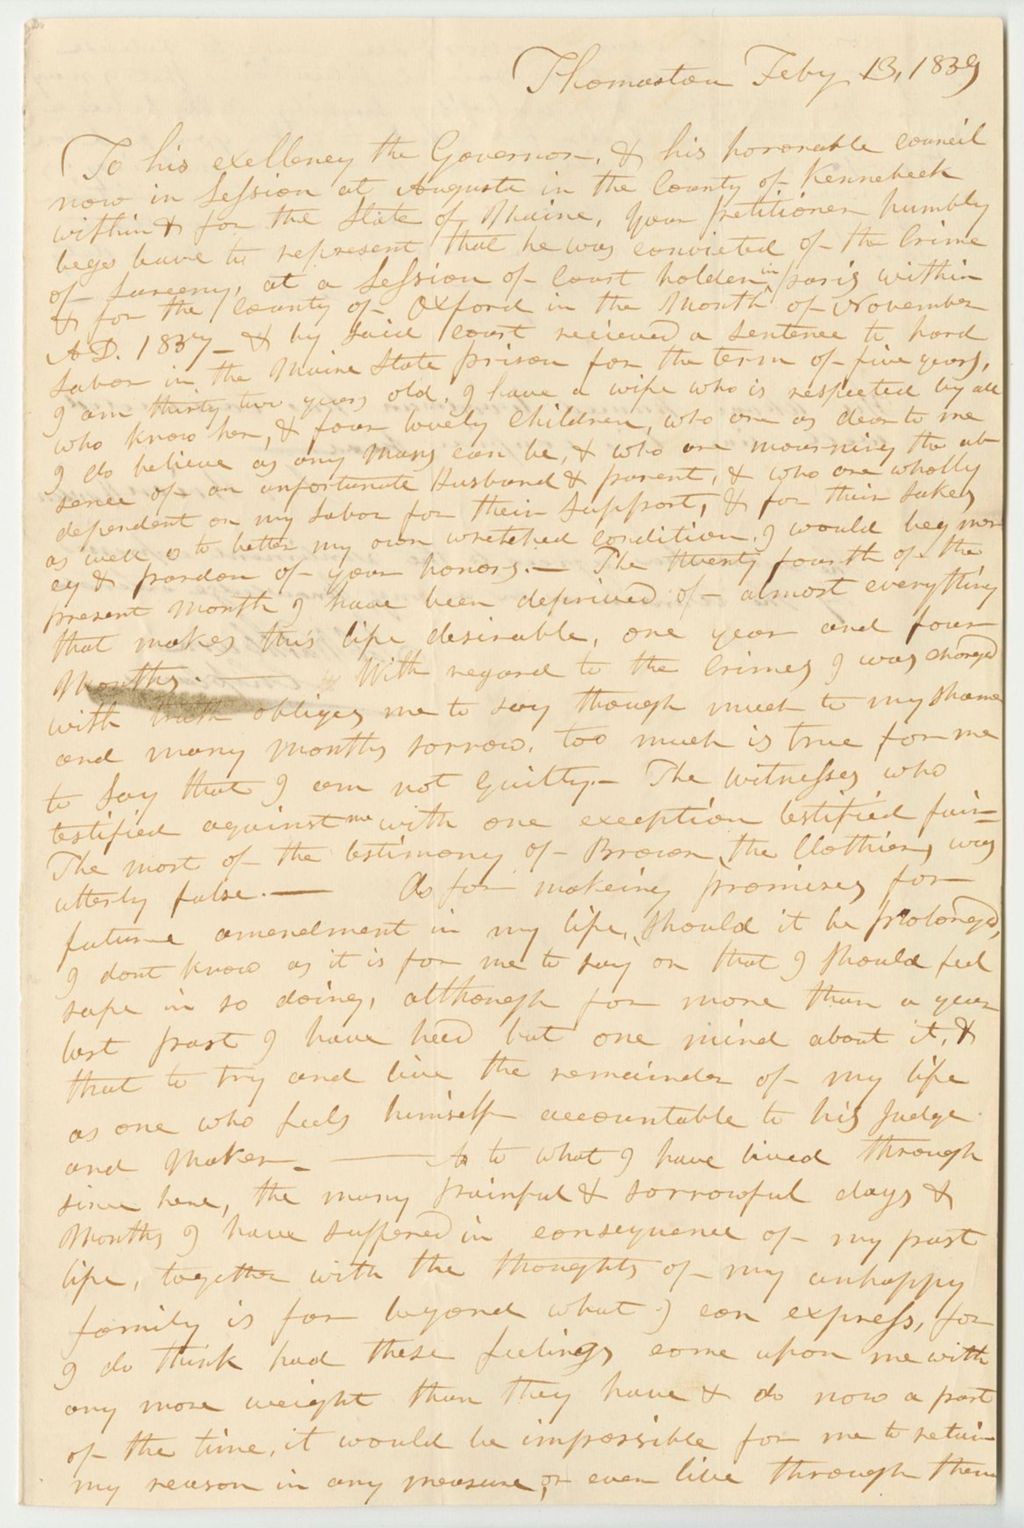 Thomaston Feby 13, 1839
To his exellency the Governor, & his honorable council
now in Session at Augusta in the County of Kennebeck
within & for the State of Maine, Your petitioner humbly
begs leave to represent that he was convicted of the Crime
of Larceny, at a Session of Court holden in Paris within
& for the County of Oxford in the Month of November
A.D. 1837 – & by said court recieved a sentence to hard
Labor in the Maine State prison for the term of five years,
I am thirty two years old, I have a wife who is respected by all
who know her, & four lovely Children, who are as dear to me
I do believe as any Mans can be, & who are mourning the ab
sence of an unfortunate Husband & parent, & who are wholly
dependent on my Labor for their Support, & for their Sakes
as well as to better my own wretched condition, I would beg mer
cy & pardon of your honors. — The twenty fourth of the
present Month I have been deprived of almost everything
that makes this life desirable, one year and four
Months. —— With regard to the Crimes I was charged
with truth obliges me to say though much to my shame
and many Months sorrow, too much is true for me
to Say that I am not guilty – The witnesses who
testified against me with one exception testified fair =
The most of the testimony of Brown, the Clothier, was
utterly false. —— As for makeing promises for
future amendment in my life, Should it be prolonged,
I dont know as it is for me to say or that I Should feel
safe in so doing, although for more than a year
last past I have had but one mind about it, &
that to try and live the remainder of my life
as one who feels himself accountable to his Judge
and Maker – —— As to what I have lived through
since here, the many painful & sorrowful days &
Months I have suffered in consequence of my past
life, together with the thoughts of my unhappy
family is far beyond what I can express, for
I do think had these feelings come upon me with
any more weight than they have & do now a part
of the time, it would be impossible for me to retain
my reason in any measure, or even live through them